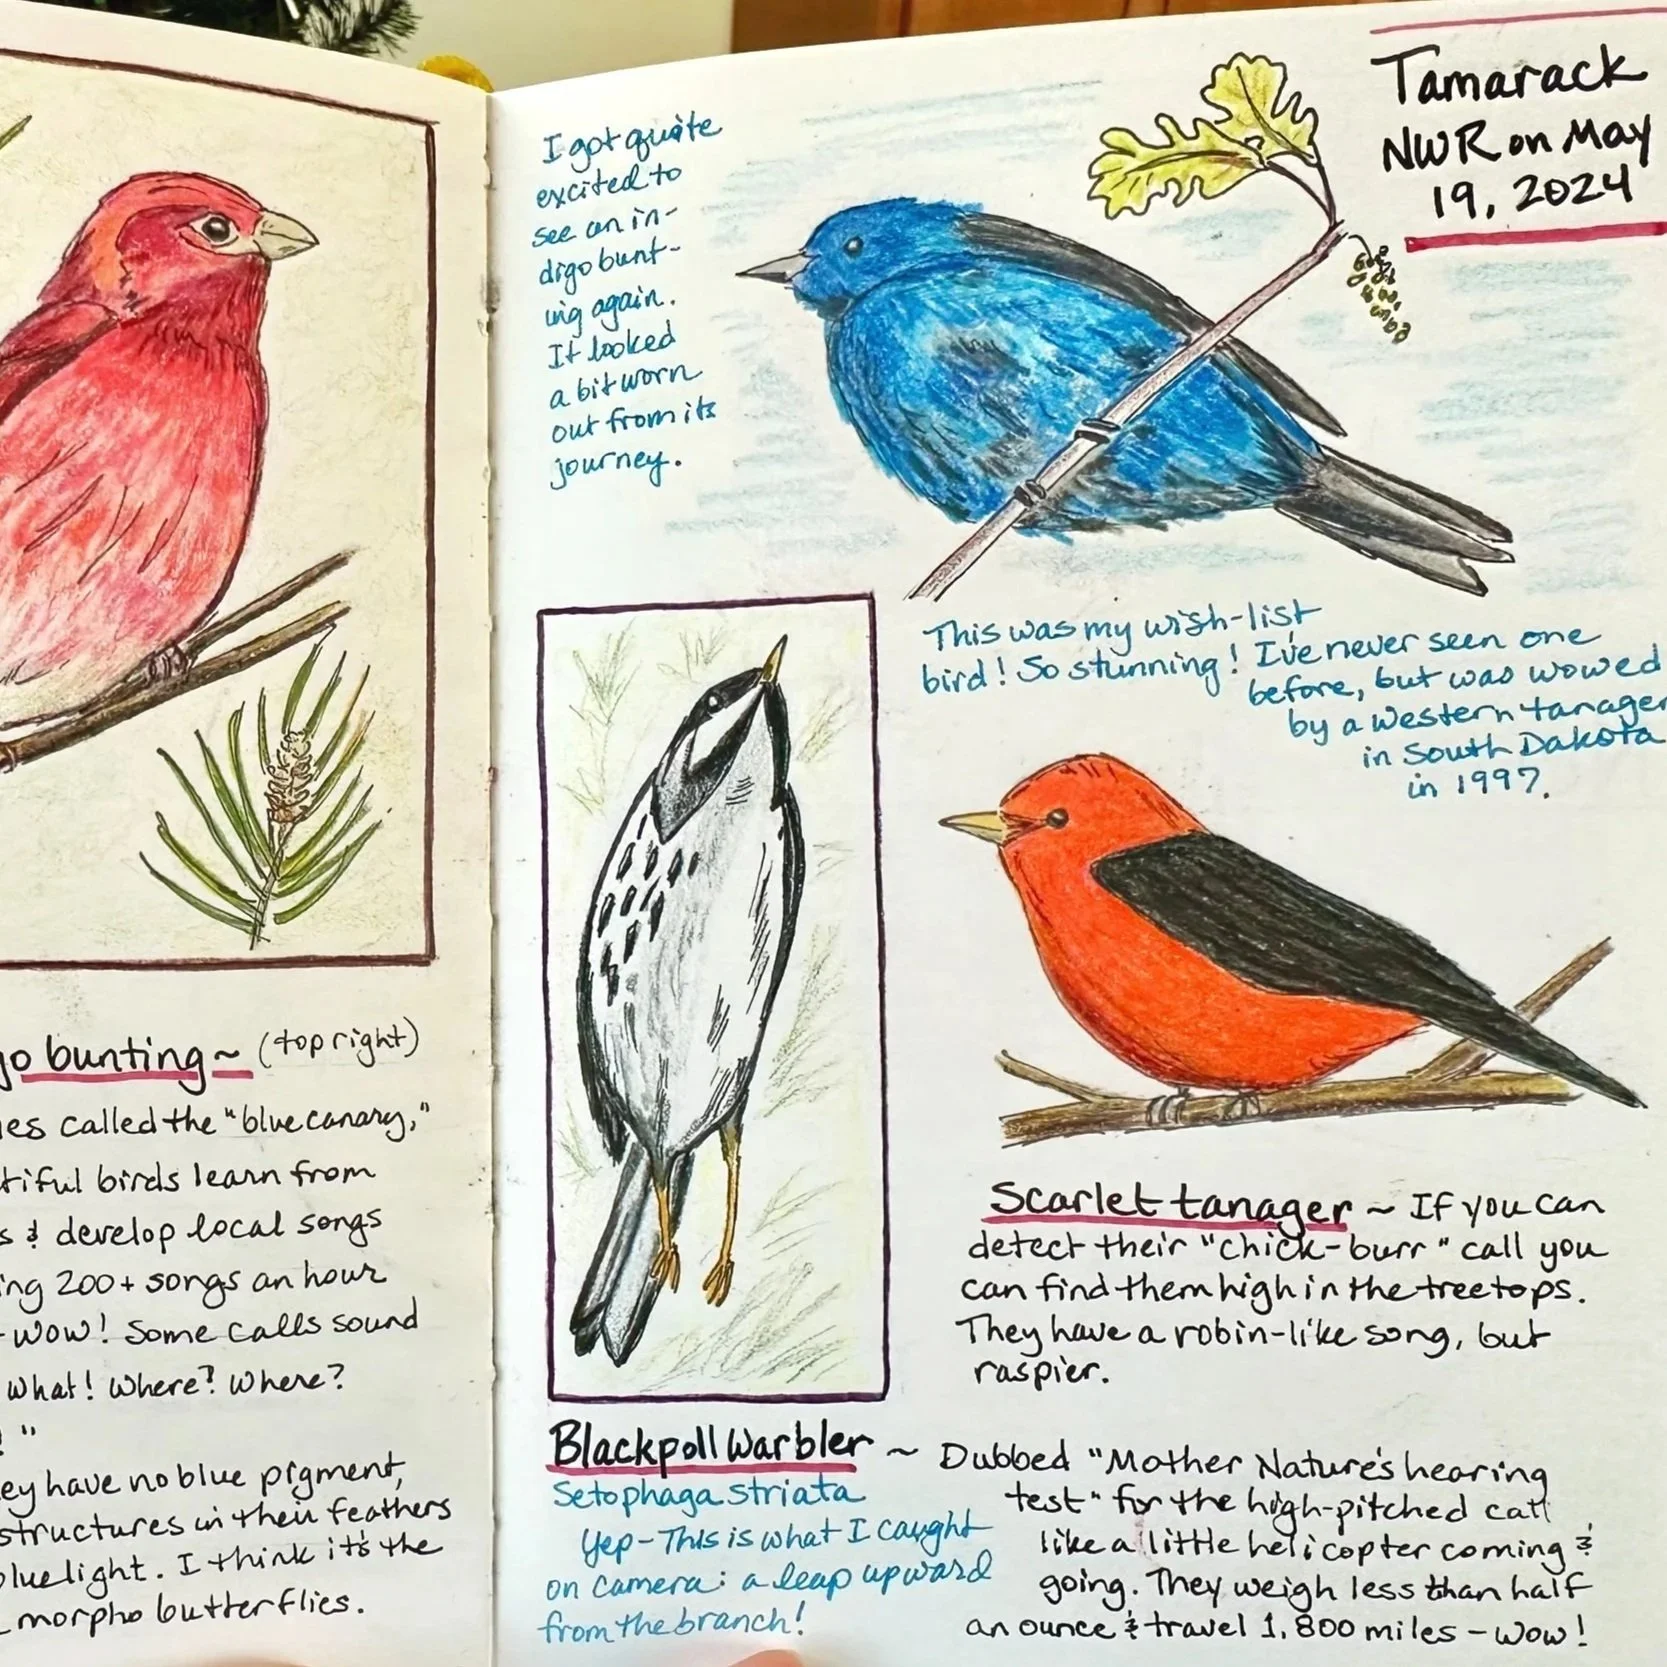 go bunting ~ (top right)
ies called the "blue canary,"
tiful birds learn from
s & develop local songs
ing 200+ songs an hour
- wow! Some calls sound
what! Where? Where?
!"
ey have no blue pigment,
structures in their feathers
blue light. I think it's the
morpho butterflies.
I got quite
excited to
see an in-
digo bunt-
ing again.
It looked
a bit worn
out from its
journey.
Tamarack
NWR on May
19, 2024
This was my wish-list
bird! So stunning! I've never seen one
before, but was wowed
by a western tanager
in South Dakota
in 1997.
Scarlet tanager ~ If you can
detect their "chick-burr" call you
can find them high in the treetops.
They have a robin-like song, but
raspier.
Blackpoll Warbler ~ Dubbed "Mother Nature's hearing
test" for the high-pitched call
like a little helicopter coming &
going. They weigh less than half
an ounce & travel 1,800 miles - wow!
Setophaga striata
Yep - This is what I caught
on camera: a leap upward
from the branch!